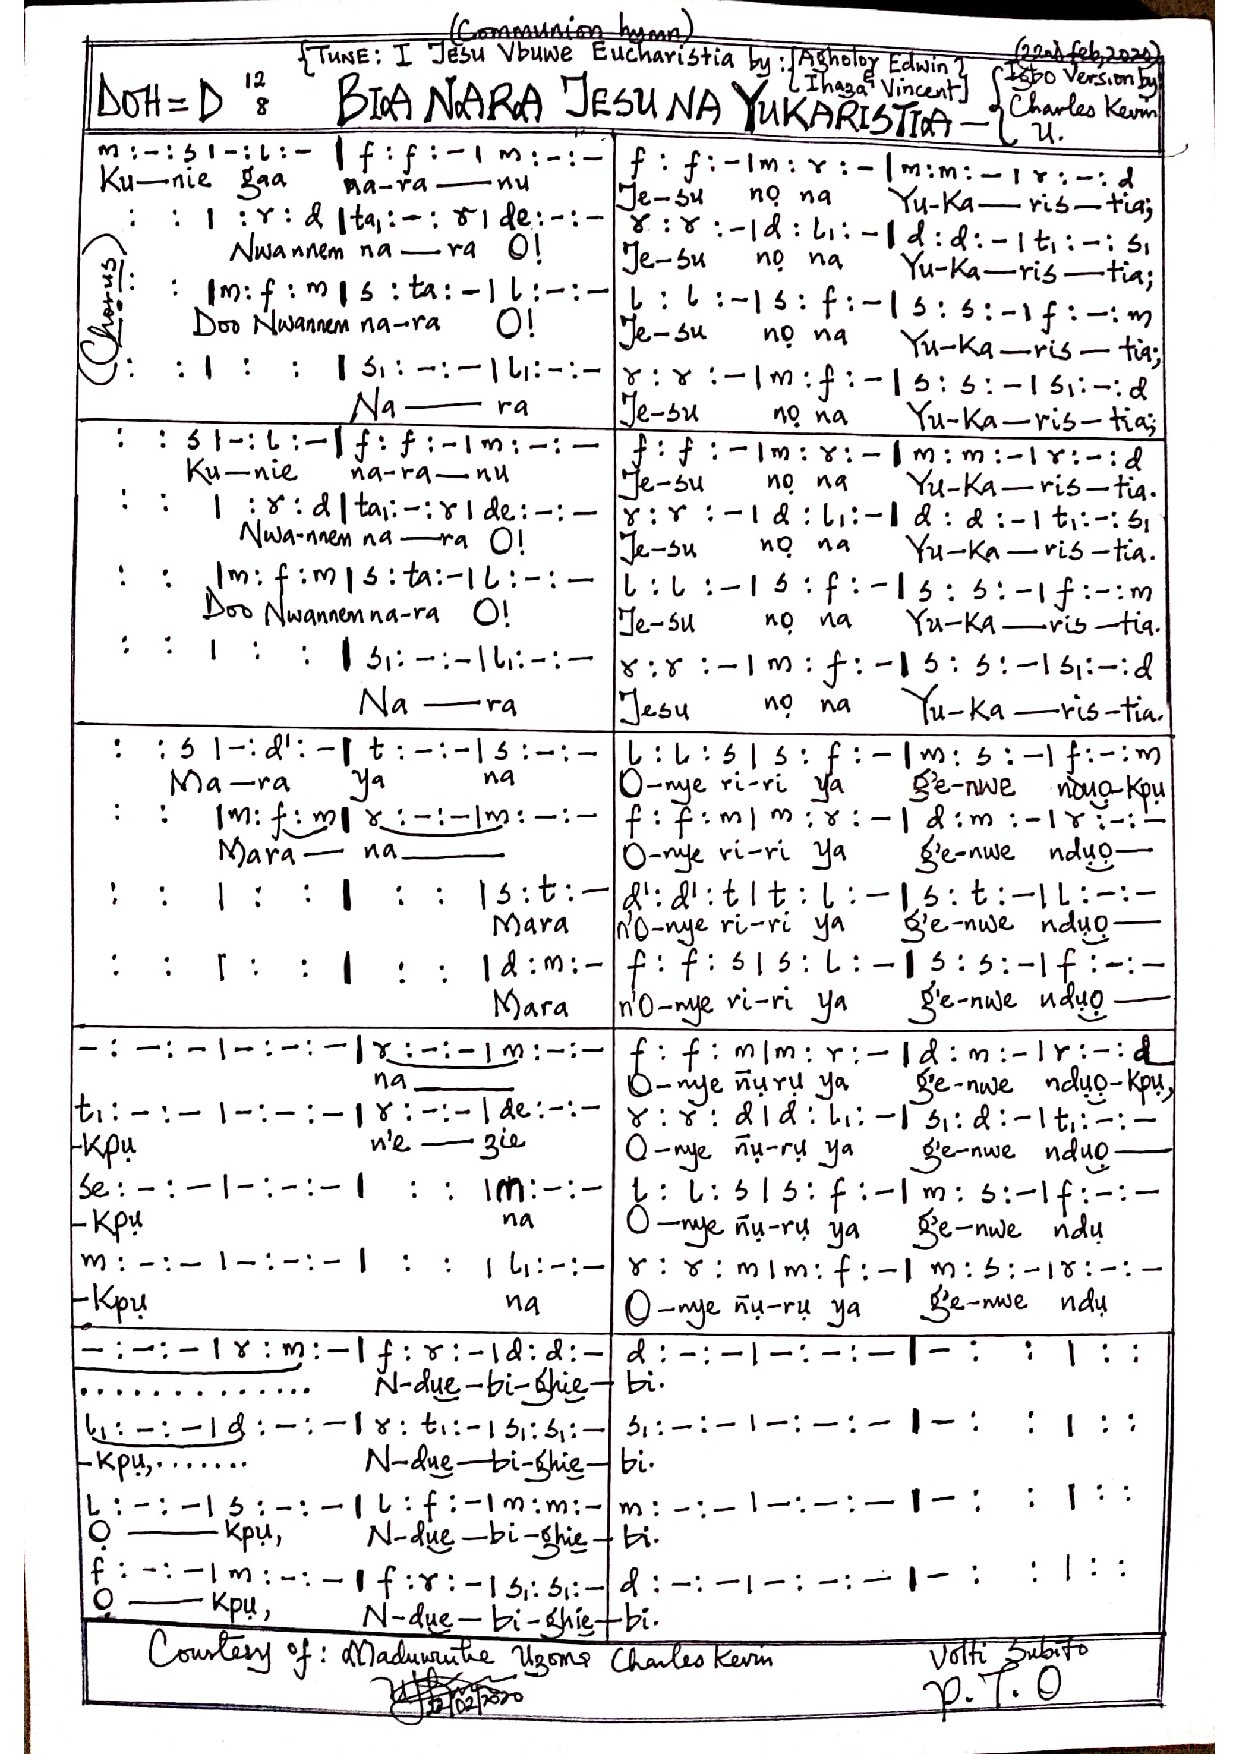 (Communion hymn)
{TUNE: I Jesu Vbuwe Eucharistia by: [Agholor Edwin
Ihaza Vincent]} (22nd Feb, 2020)
DOH = D 12/8 BIA NARA JESU NA YUKARISTIA – { Igbo Version by
Charles Kevin
U.
m : – : s | – : l : – | f : f : – | m : – : – f : f : – | m : r : – | m : m : – | r : – : d
Ku–nie gaa na-ra–nu Je-su nọ na Yu-Ka–ris–tia;
: : | : r : d | ta₁ : – : r | de : – : – r : r : – | d : l₁ : – | d : d : – | t₁ : – : s₁
Nwannem na–ra O! Je-su nọ na Yu-Ka–ris–tia;
(Chorus)
: : | m : f : m | s : ta : – | l : – : – l : l : – | s : f : – | s : s : – | f : – : m
Doo Nwannem na–ra O! Je-su nọ na Yu-Ka–ris–tia;
: : | : : | s₁ : – : – | l₁ : – : – r : r : – | m : f : – | s : s : – | s₁ : – : d
Na–ra Je-su nọ na Yu-Ka–ris–tia;
: : s | – : l : – | f : f : – | m : – : – f : f : – | m : r : – | m : m : – | r : – : d
Ku–nie na-ra–nu Je-su nọ na Yu-Ka–ris–tia.
: : | : r : d | ta₁ : – : r | de : – : – r : r : – | d : l₁ : – | d : d : – | t₁ : – : s₁
Nwa-nnem na–ra O! Je-su nọ na Yu–Ka–ris–tia.
: : | m : f : m | s : ta : – | l : – : – l : l : – | s : f : – | s : s : – | f : – : m
Doo Nwannem na-ra O! Je-su nọ na Yu-Ka–ris–tia.
: : | : : | s₁ : – : – | l₁ : – : – r : r : – | m : f : – | s : s : – | s₁ : – : d
Na–ra Jesu nọ na Yu–Ka–ris–tia.
: : s | – : d' : – | t : – : – | s : – : – l : l : s | s : f : – | m : s : – | f : – : m
Ma–ra ya na O-nye ri-ri ya g'e-nwe nduọ-Kpụ
: : | m : f : m | r : – : – | m : – : – f : f : m | m : r : – | d : m : – | r : – : –
Mara– na– O-nye ri-ri ya g'e-nwe ndụọ–
: : | : : | : : | s : t : – d' : d' : t | t : l : – | s : t : – | l : – : –
Mara n'O-nye ri-ri ya g'e-nwe ndụọ–
: : | : : | : : | d : m : – f : f : s | s : l : – | s : s : – | f : – : –
Mara n'O-nye ri-ri ya g'e-nwe ndụọ–
– : – : – | – : – : – | r : – : – | m : – : – f : f : m | m : r : – | d : m : – | r : – : d
na– O-nye ñụrụ ya g'e-nwe ndụọ-Kpụ,
t₁ : – : – | – : – : – | r : – : – | de : – : – r : r : d | d : l₁ : – | s₁ : d : – | t₁ : – : –
-Kpụ n'e–zie O-nye ñụ-rụ ya g'e-nwe ndụọ–
se : – : – | – : – : – | : : | m : – : – l : l : s | s : f : – | m : s : – | f : – : –
-Kpụ na O–nye ñụ-rụ ya g'e-nwe ndụ
m : – : – | – : – : – | : : | l₁ : – : – r : r : m | m : f : – | m : s : – | r : – : –
-Kpụ na O–nye ñụ-rụ ya g'e-nwe ndụ
– : – : – | r : m : – | f : r : – | d : d : – d : – : – | – : – : – | – : : | : :
............. N-dụe–bi-ghie–bi.
l₁ : – : – | d : – : – | r : t₁ : – | s₁ : s₁ : – s₁ : – : – | – : – : – | – : : | : :
-Kpụ,....... N-dụe–bi-ghie–bi.
l : – : – | s : – : – | l : f : – | m : m : – m : – : – | – : – : – | – : : | : :
Ọ–Kpụ, N-dụe–bi-ghie–bi.
f : – : – | m : – : – | f : r : – | s₁ : s₁ : – d : – : – | – : – : – | – : : | : :
Ọ–Kpụ, N-dụe–bi-ghie–bi.
Courtesy of : Maduwuthe Uzoma Charles Kevin Volti Subito
22/02/2020 P.T.O